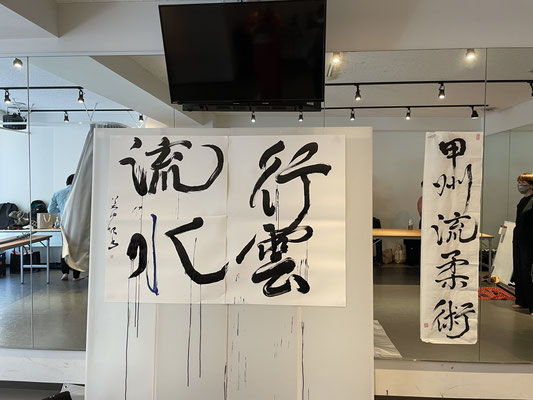 行雲
流水
甲州流柔術